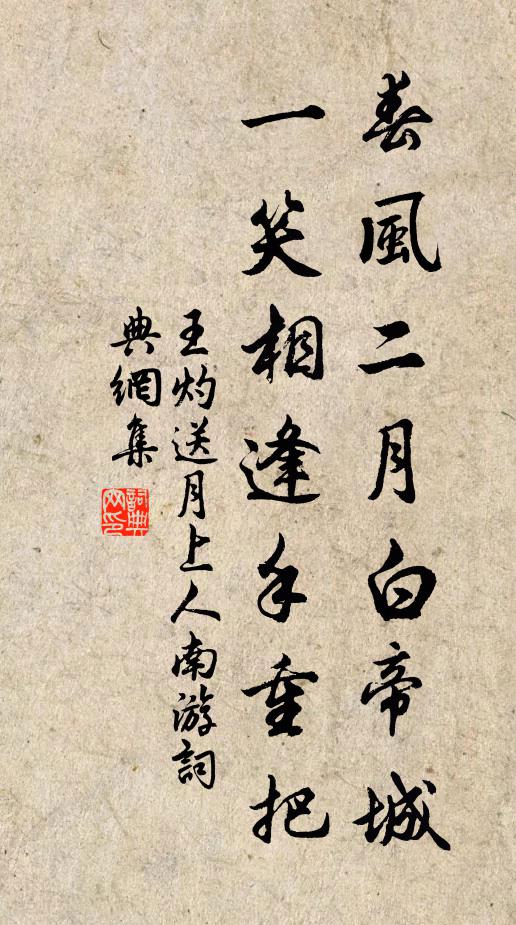 春風二月白帝城
一笑相逢手重把
王灼送月上人南游詞
典網集
詞典網印